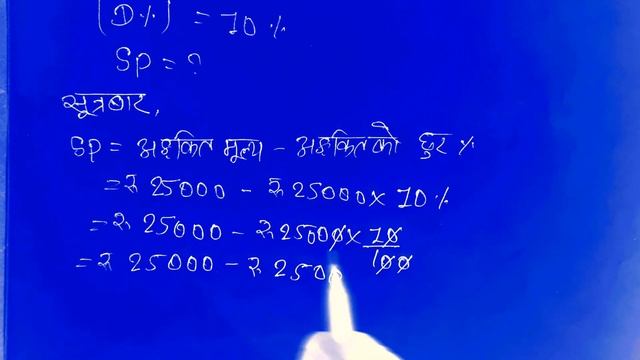 (D%) = 10%
SP = ?
सूत्रबाट,
SP = अङ्कित मूल्य - अङ्कितको छुट %
= रु 25000 - रु 25000 × 10%
= रु 25000 - रु 25000 × 10/100
= रु 25000 - रु 2500